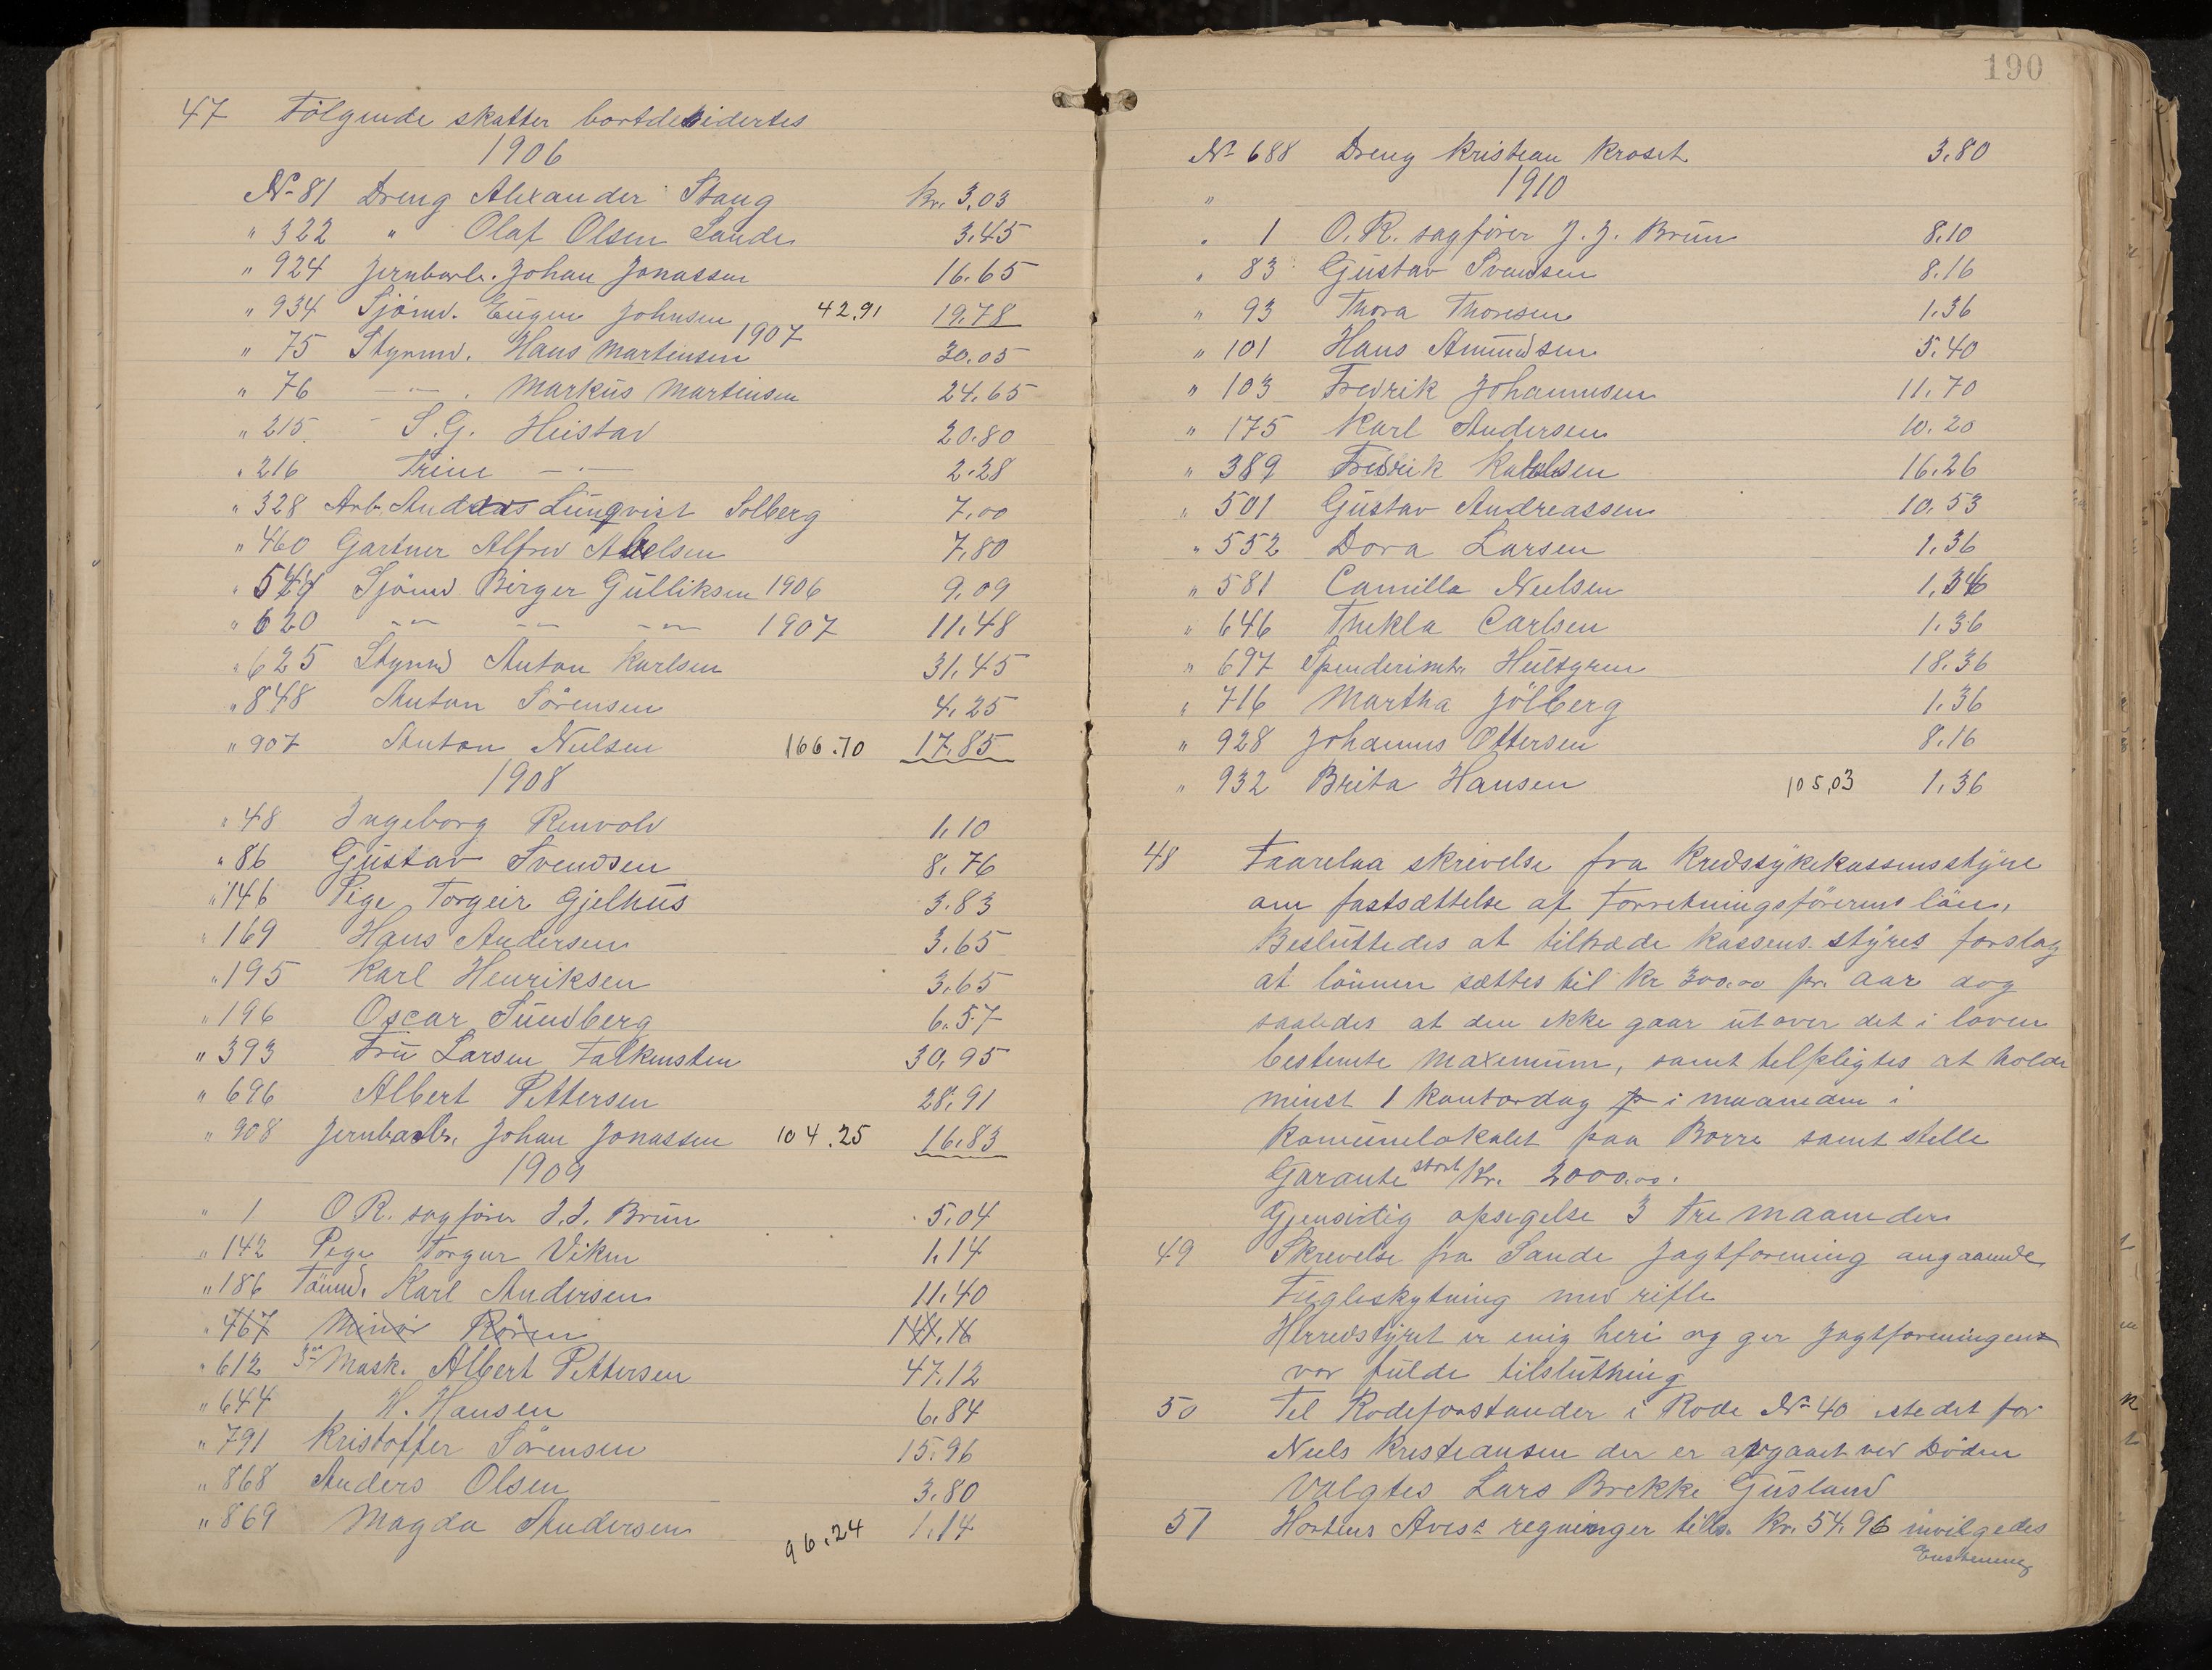 47 Følgende skatter bortdesidertes
1906
No 81 Dreng Alexander Stang kr. 3.03
" 322 " Olaf Olsen Sande 3.45
" 924 Jernbarb. Johan Jonassen 16.65
" 934 Sjömd. Eugen Johnsen 42.91 19.78
1907
" 75 Styrmd. Hans Martinsen 30.05
" 76 —"— . Markus Martinsen 24.65
" 215 S.G. Heistad 20.80
" 216 Trine —"— 2.28
" 328 Arb. Anders Lunqvist Solberg 7.00
" 460 Gartner Alfred Abelsen 7.80
" 544 Sjömd Birger Gulliksen 1906 9.09
" 620 -"- -"- -"- 1907 11.48
" 625 Styrmd Anton Karlsen 31.45
" 848 Anton Sörensen 4.25
" 907 Anton Nielsen 166.70 17.85
1908
" 48 Ingeborg Renvold 1.10
" 86 Gustav Svendsen 8.76
" 146 Pige Torgeir Gjelhus 3.83
" 169 Hans Andersen 3.65
" 195 Karl Henriksen 3.65
" 196 Oscar Sundberg 6.57
" 393 Fru Larsen Falkensten 30.95
" 696 Albert Pettersen 28.91
" 908 Jernbarb. Johan Jonassen 104.25 16.83
1909
" 1 O R. sagförer J.J. Brun 5.04
" 142 Pige Torgur Viken 1.14
" 186 Tömd. Karl Andersen 11.40
" 467 Minör Rören
" 612 3die Mask. Albert Pettersen 47.12
" 644 H. Hansen 6.84
" 791 Kristoffer Sörensen 15.96
" 868 Anders Olsen 3.80
" 869 Magda Andersen 96.24 1.14
190
No 688 Dreng Kristian Kroset 3.80
" 1910
" 1 O.R. sagförer J.J. Brun 8.10
" 83 Gustav Svendsen 8.16
" 93 Thora Thoresen 1.36
" 101 Hans Amundsen 5.40
" 103 Fredrik Johannesen 11.70
" 175 Karl Andersen 10.20
" 389 Fredrik 16.26
" 501 Gustav Andreassen 10.53
" 552 Dora Larsen 1.36
" 581 Camilla Nielsen 1.36
" 646 Thekla Carlsen 1.36
" 697 Spenderimtr. Hultgren 18.36
" 716 Martha Jölberg 1.36
" 928 Johannes Ottersen 8.16
" 932 Brita Hansen 105,03 1.36
48 Foarelaa skrivelse fra Kredssykekassensstyre
om fastsættelse af Forretningsförerens lön.
Besluttedes at tiltræde kassens styres forslag
at lönnen sættes til Kr 300.00 pr. aar dog
saaledes at den ikke gaar utover det i loven
bestemte maximum, samt tilpligtes at holde
minst 1 kontordag p i maaneden i
Komunelokalet paa Borre samt stelle
Garanti stort Kr. 2000.00.
Gjensidig opsigelse 3 tre maaneder
49 Skrivelse fra Sande Jagtforening angaaende
Fugleskytning med rifle
Herredstyret er enig heri og ger Jagtforeningen
vor fulde tilslutning
50 Til Rodeforstander i Rode No 40 istedet for
Niels Kristiansen der er avgaaet ved Döden
Valgtes Lars Brekke Gusland
51 Hortens Avis's regninger tils. Kr. 54.96 invilgedes
Enstemmig